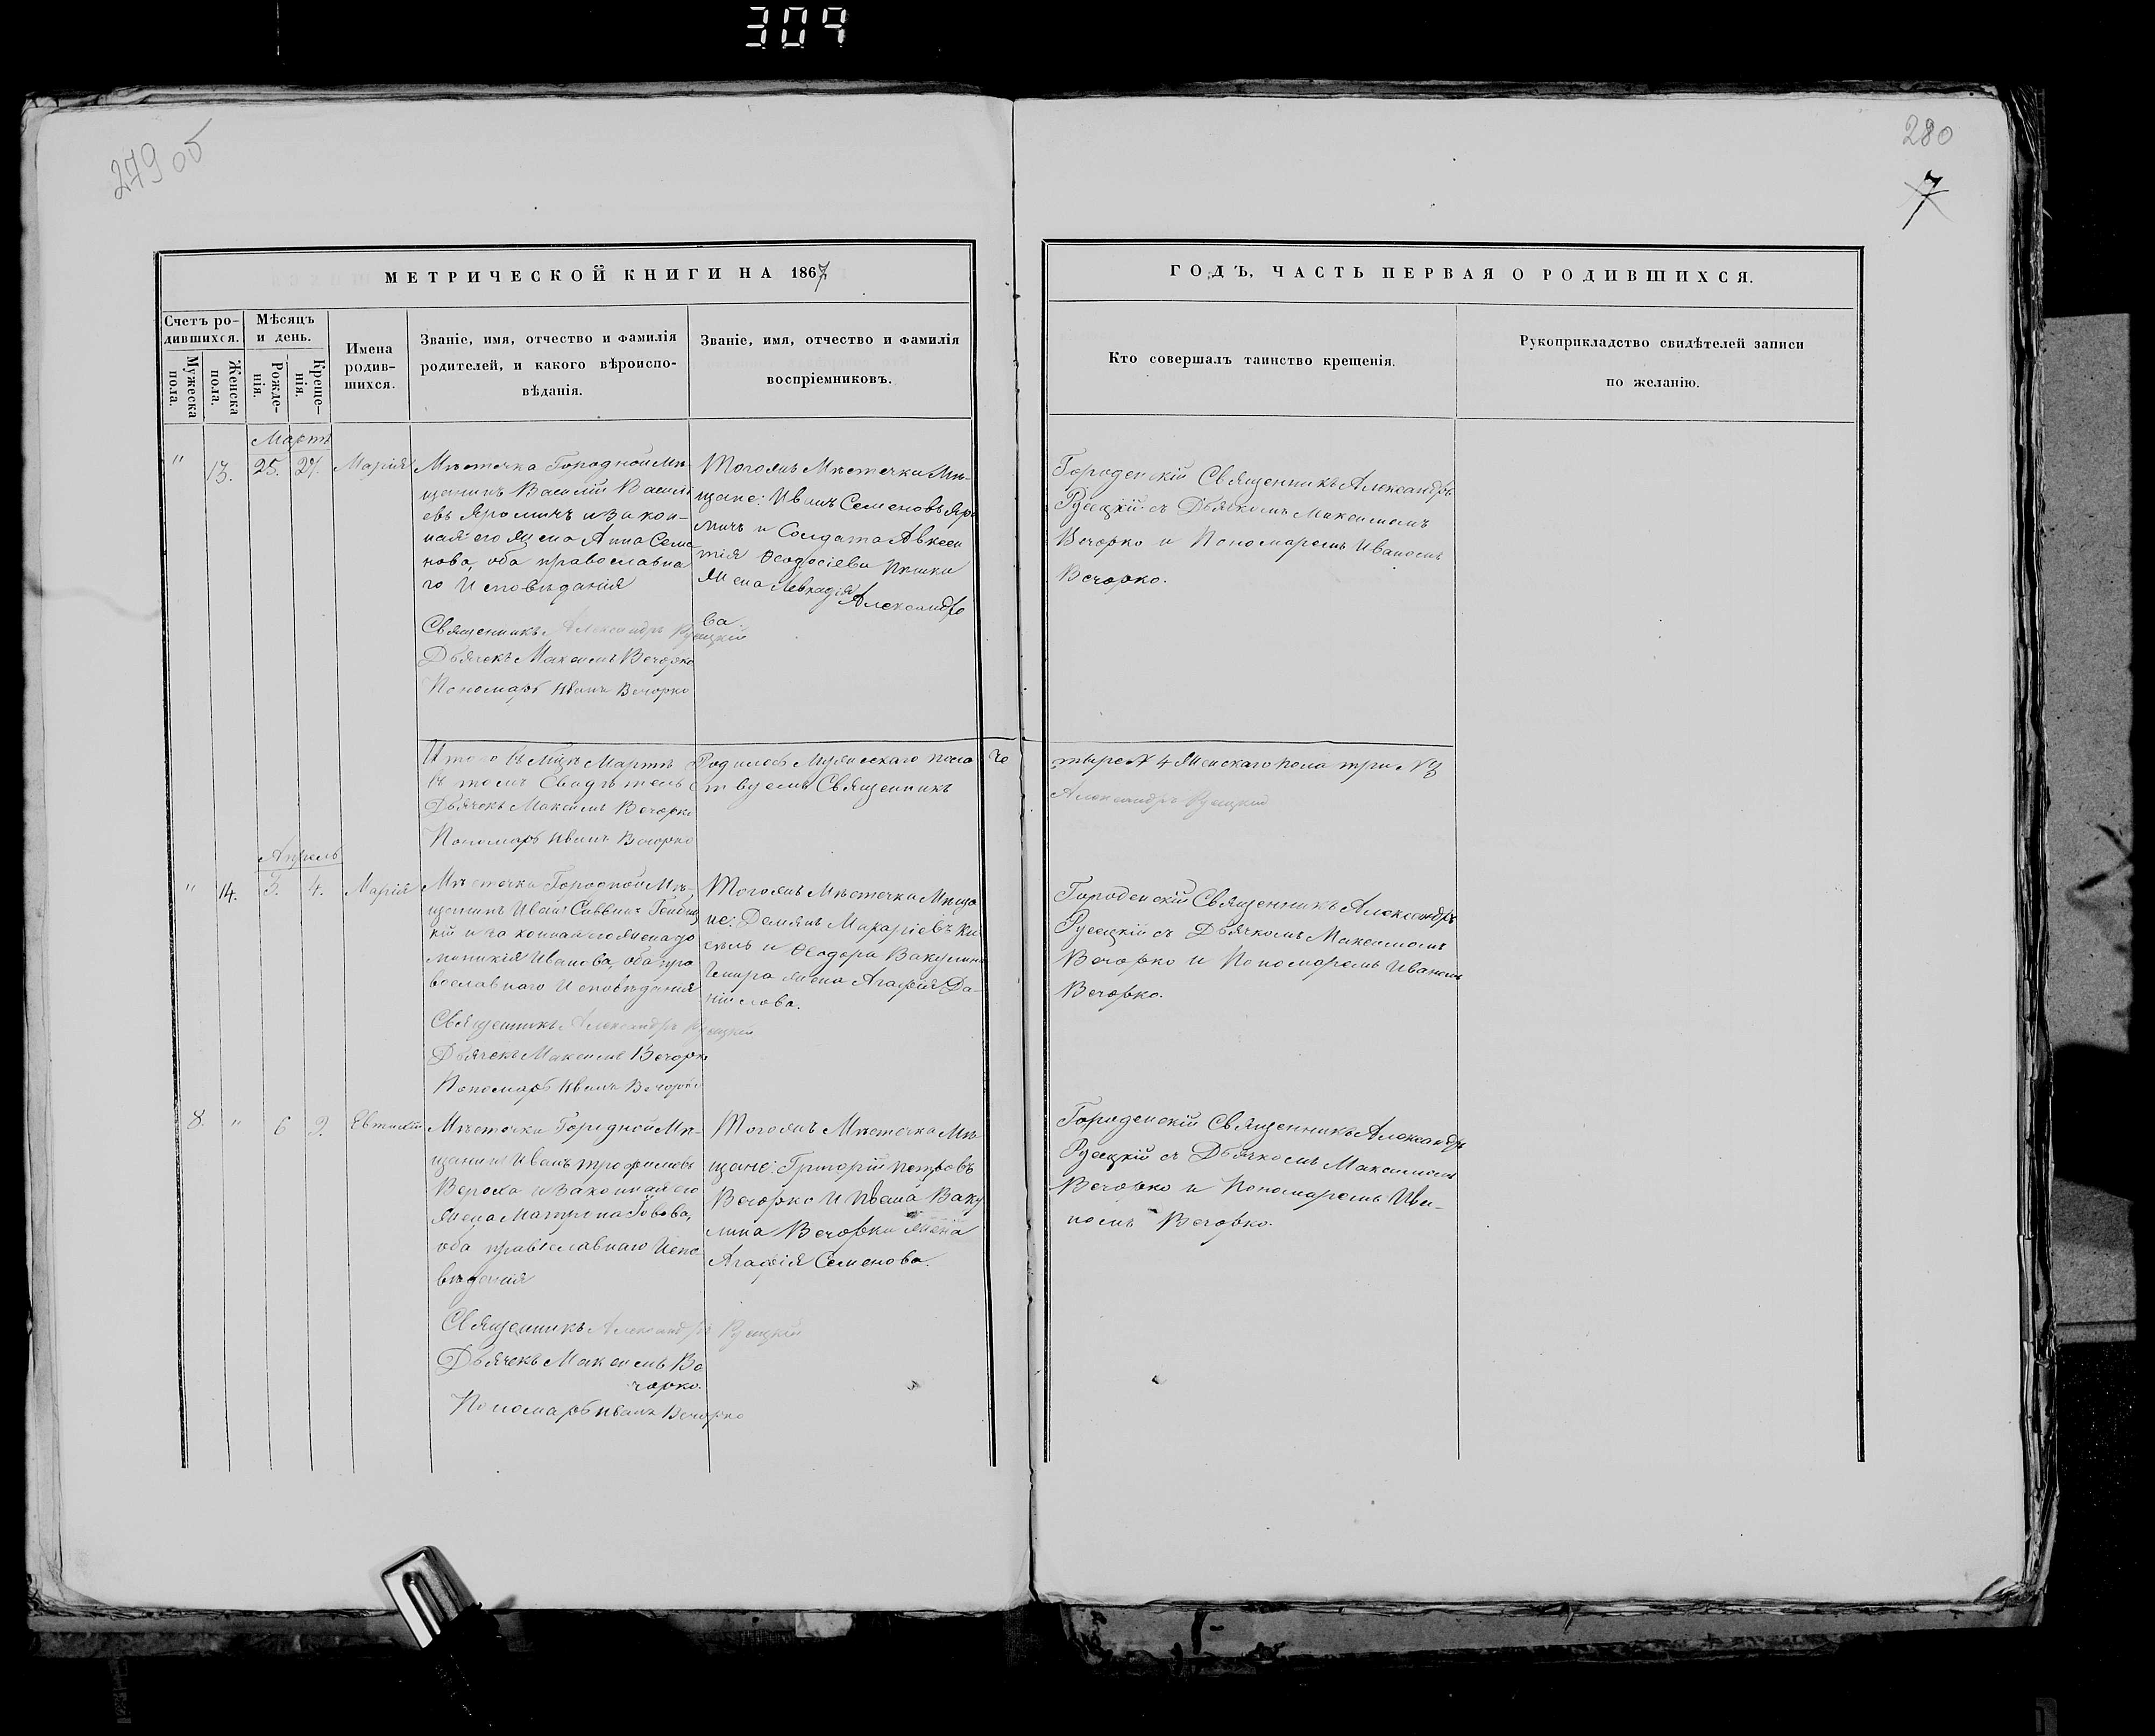 309
279 об
280
7
МЕТРИЧЕСКОЙ КНИГИ НА 1867
ГОДЪ, ЧАСТЬ ПЕРВАЯ О РОДИВШИХСЯ.
Счетъ ро-
дившихся.
Мужеска
пола.
Женска
пола.
Мѣсяцъ
и день.
Рожде-
нія.
Креще-
нія.
Имена
родив-
шихся.
Званіе, имя, отчество и фамилія
родителей, и какого вѣроиспо-
вѣданія.
Званіе, имя, отчество и фамилія
воспріемниковъ.
Кто совершалъ таинство крещенія.
Рукоприкладство свидѣтелей записи
по желанію.
Мартъ
" 13. 25. 27. Марія
Мѣстечка Городной Мѣ-
щанинъ Василій Василі
евъ Яромичъ и закон-
ная его жена Анна Семе
нова, оба православна
го Исповѣданія
Священникъ Александръ Русецкій
Дьячекъ Максимъ Вечорко
Пономарь Иванъ Вечорко
Тогожъ Мѣстечка Мѣ-
щане: Иванъ Семеновъ Яро
мичъ и Солдата Авксен
тія Ѳеодосіева
жена Левкадія Александро
ва.
Городенскій Священникъ Александръ
Русецкій съ Дьячкомъ Максимомъ
Вечорко и Пономаремъ Иваномъ
Вечорко.
Итого въ Мцѣ Мартѣ Родилось Мужескаго пола че тыре N 4 Женскаго пола три N 3
въ томъ Свидѣтельствуемъ Священникъ Александръ Русецкій
Дьячекъ Максимъ Вечорко
Пономарь Иванъ Вечорко
Апрель
" 14. 3. 4. Марія
Мѣстечка Городной Мѣ-
щанинъ Иванъ Саввинъ
кій и законная его жена До
миникія Иванова, оба пра
вославнаго Исповѣданія
Священникъ Александръ Русецкій
Дьячекъ Максимъ Вечорко
Пономарь Иванъ Вечорко
Тогожъ Мѣстечка Мѣща
не: Демянъ Макаріевъ
и Ѳеодора Вакулина
жена Агафія Да-
ніилова.
Городенскій Священникъ Александръ
Русецкій съ Дьячкомъ Максимомъ
Вечорко и Пономаремъ Иваномъ
Вечорко.
8. " 6 9. Евтихій
Мѣстечка Городной Мѣ-
щанинъ Иванъ Трофимовъ
Вероха и законная его
жена Матрона
оба православнаго Испо
вѣданія
Священникъ Александръ Русецкій
Дьячекъ Максимъ Ве
чорко.
Пономарь Иванъ Вечорко
Тогожъ Мѣстечка Мѣ
щане: Григорій Петровъ
Вечорко и Ивана Ваку
лина Вечорки жена
Агафія Семенова.
Городенскій Священникъ Александръ
Русецкій съ Дьячкомъ Максимомъ
Вечорко и Пономаремъ Ива-
номъ Вечорко.